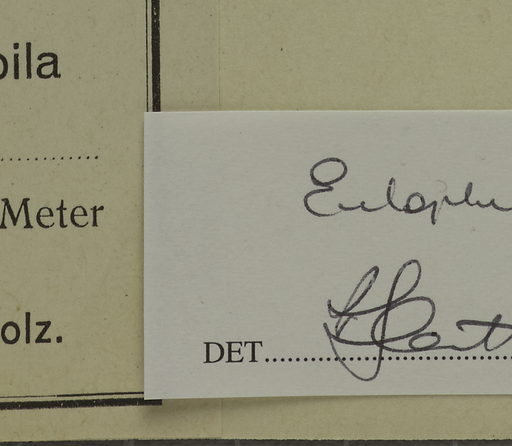 oila
Meter
olz.
Eulophi
DET